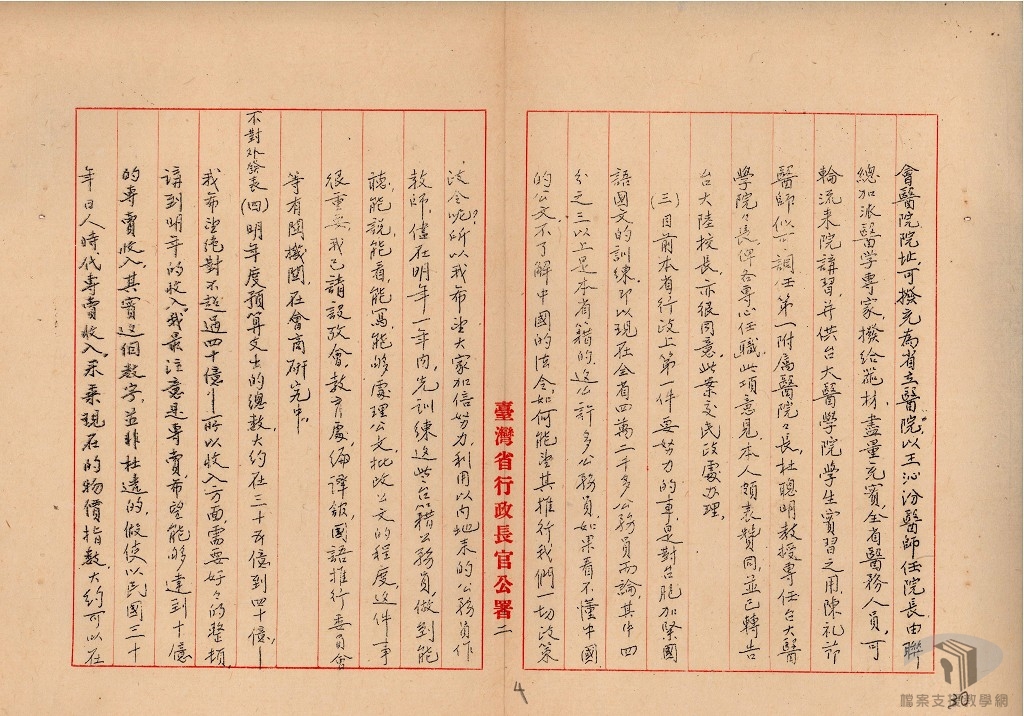 會醫院院址，可撥充為省立醫院，以王沁汾醫師任院長，由聯
總加派醫学專家，撥給器材，盡量充實，全省醫務人員，可
輪流來院講習，并供台大醫学院学生實習之用，陳礼節
醫師似可調任第一附属醫院々長，杜聰明教授專任台大醫
学院々長，俾各專心任職，此項意見，本人頗表贊同，並已轉告
台大陸校長，亦很同意，此案交民政處办理。
(三)目前本省行政上第一件要努力的事，是對台胞加緊國
語國文的訓練，即以現在全省四萬二千多公務員而論，其中四
分之三以上是本省籍的，這許多公務員，如果看不懂中國
的公文，不了解中國的法令，如何能望其推行我們一切政策
臺灣省行政長官公署
二
政令呢？所以我希望大家加倍努力，利用以内地来的公務員作
教師，儘在明年一年内，先訓練這些台籍公務員，做到能
聽，能說，能看，能寫，能夠處理公文，批改公文的程度，這件事
很重要，我已請設攷會，教育處，編譯館，國語推行委員會
等有関機関，在會商研究中。
不對外發表(四)明年度預算支出的總數大约在三十五億到四十億，
我希望絕對不超過四十億，所以收入方面，需要好々的整頓，
講到明年的收入，我最注意是專賣，希望能夠達到十億
的專賣收入，其實這個數字，並非杜造的，假使以民國三十
年日人時代專賣收入，来乘現在的物價指數，大约可以在
4
30
檔案支援教學網